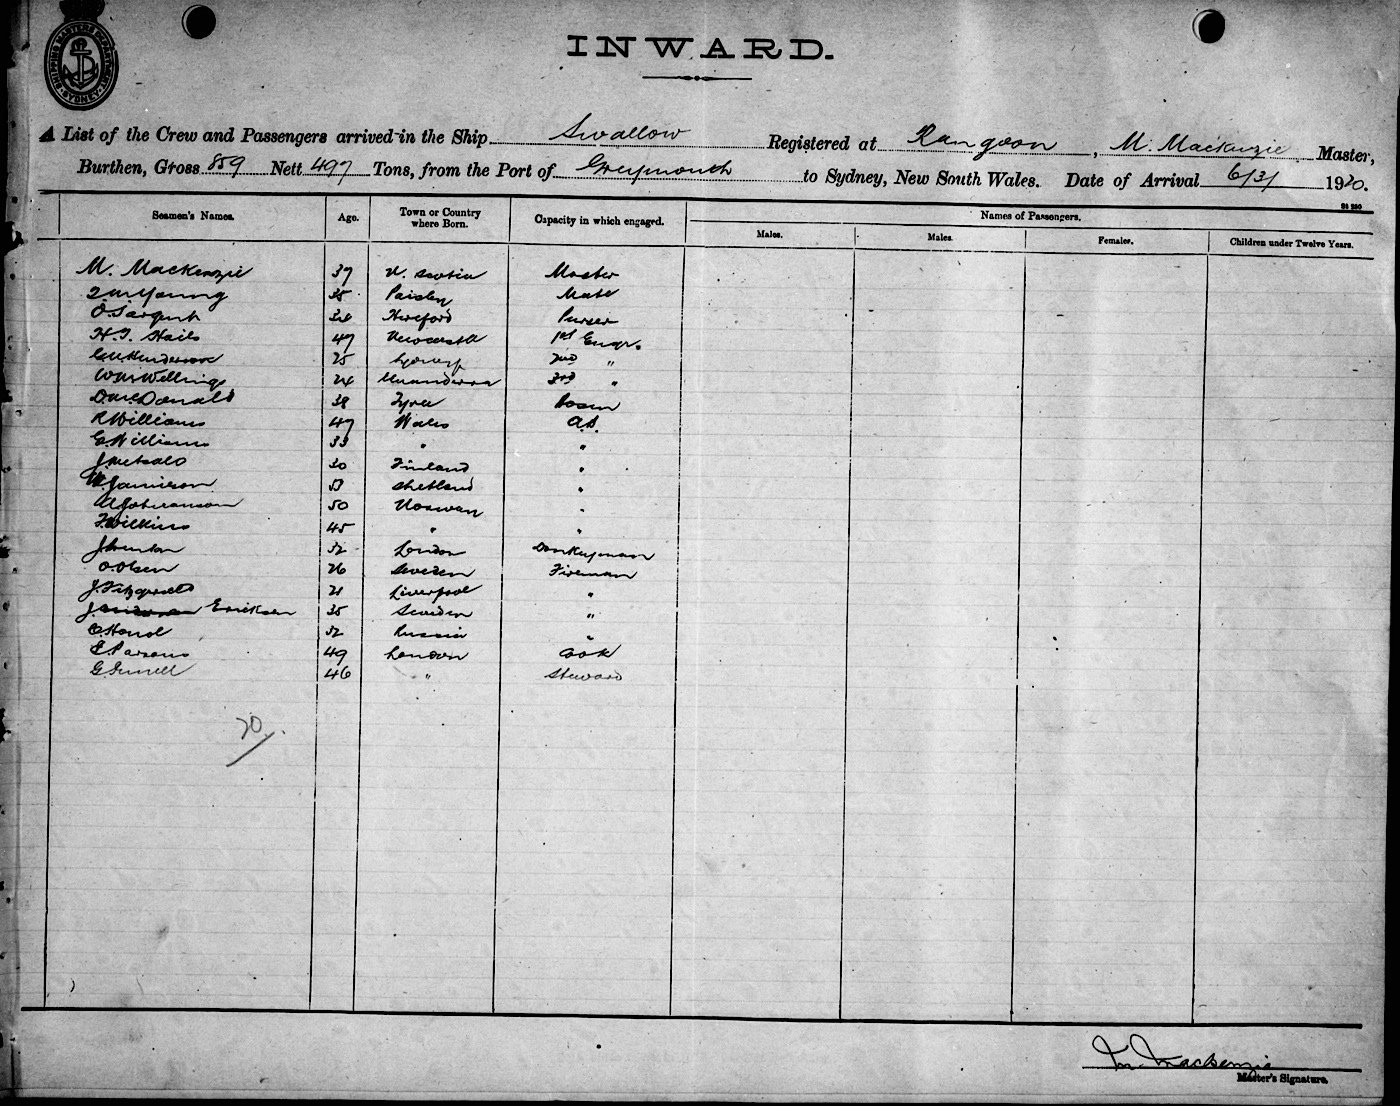 SHIPPING MASTERS DEPARTMENT SYDNEY
INWARD.
A List of the Crew and Passengers arrived in the Ship Swallow Registered at Rangoon, M. Mackenzie Master,
Burthen, Gross 859 Nett 497 Tons, from the Port of Greymouth to Sydney, New South Wales. Date of Arrival 6/3/ 1920.
Seamen's Names. Age. Town or Country where Born. Capacity in which engaged. Names of Passengers.
Males. Males. Females. Children under Twelve Years.
M. MacKenzie 37 N. Scotia Master
Young 35 Paisley Mate
O Sargent Hereford Purser
H. J. Hails 47 Newcastle 1st Engr.
Henderson 25 Sydney 2nd "
Wm Wellings 24 3rd "
D. McDonald 38 Tyree Bosun
R Williams 47 Wales A.B.
E. Williams 33 " "
30 Finland "
Jamieson 53 Shetland "
A Johansson 50 Norway "
F. Wilkins 45 " "
52 London Donkeyman
O. Olsen 26 Sweden Fireman
J. Fitzgerald 21 Liverpool "
J. Eriksen 35 Sweden "
52 Russia "
E. Parsons 49 London Cook
46 " Steward
20
M. Mackenzie
Master's Signature.